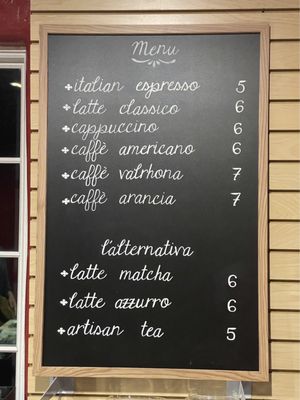 Menu
+italian espresso 5
+latte classico 6
+cappuccino 6
+caffè americano 6
+caffè valrhona 7
+caffè arancia 7
l'alternativa
+latte matcha 6
+latte azzurro 6
+artisan tea 5